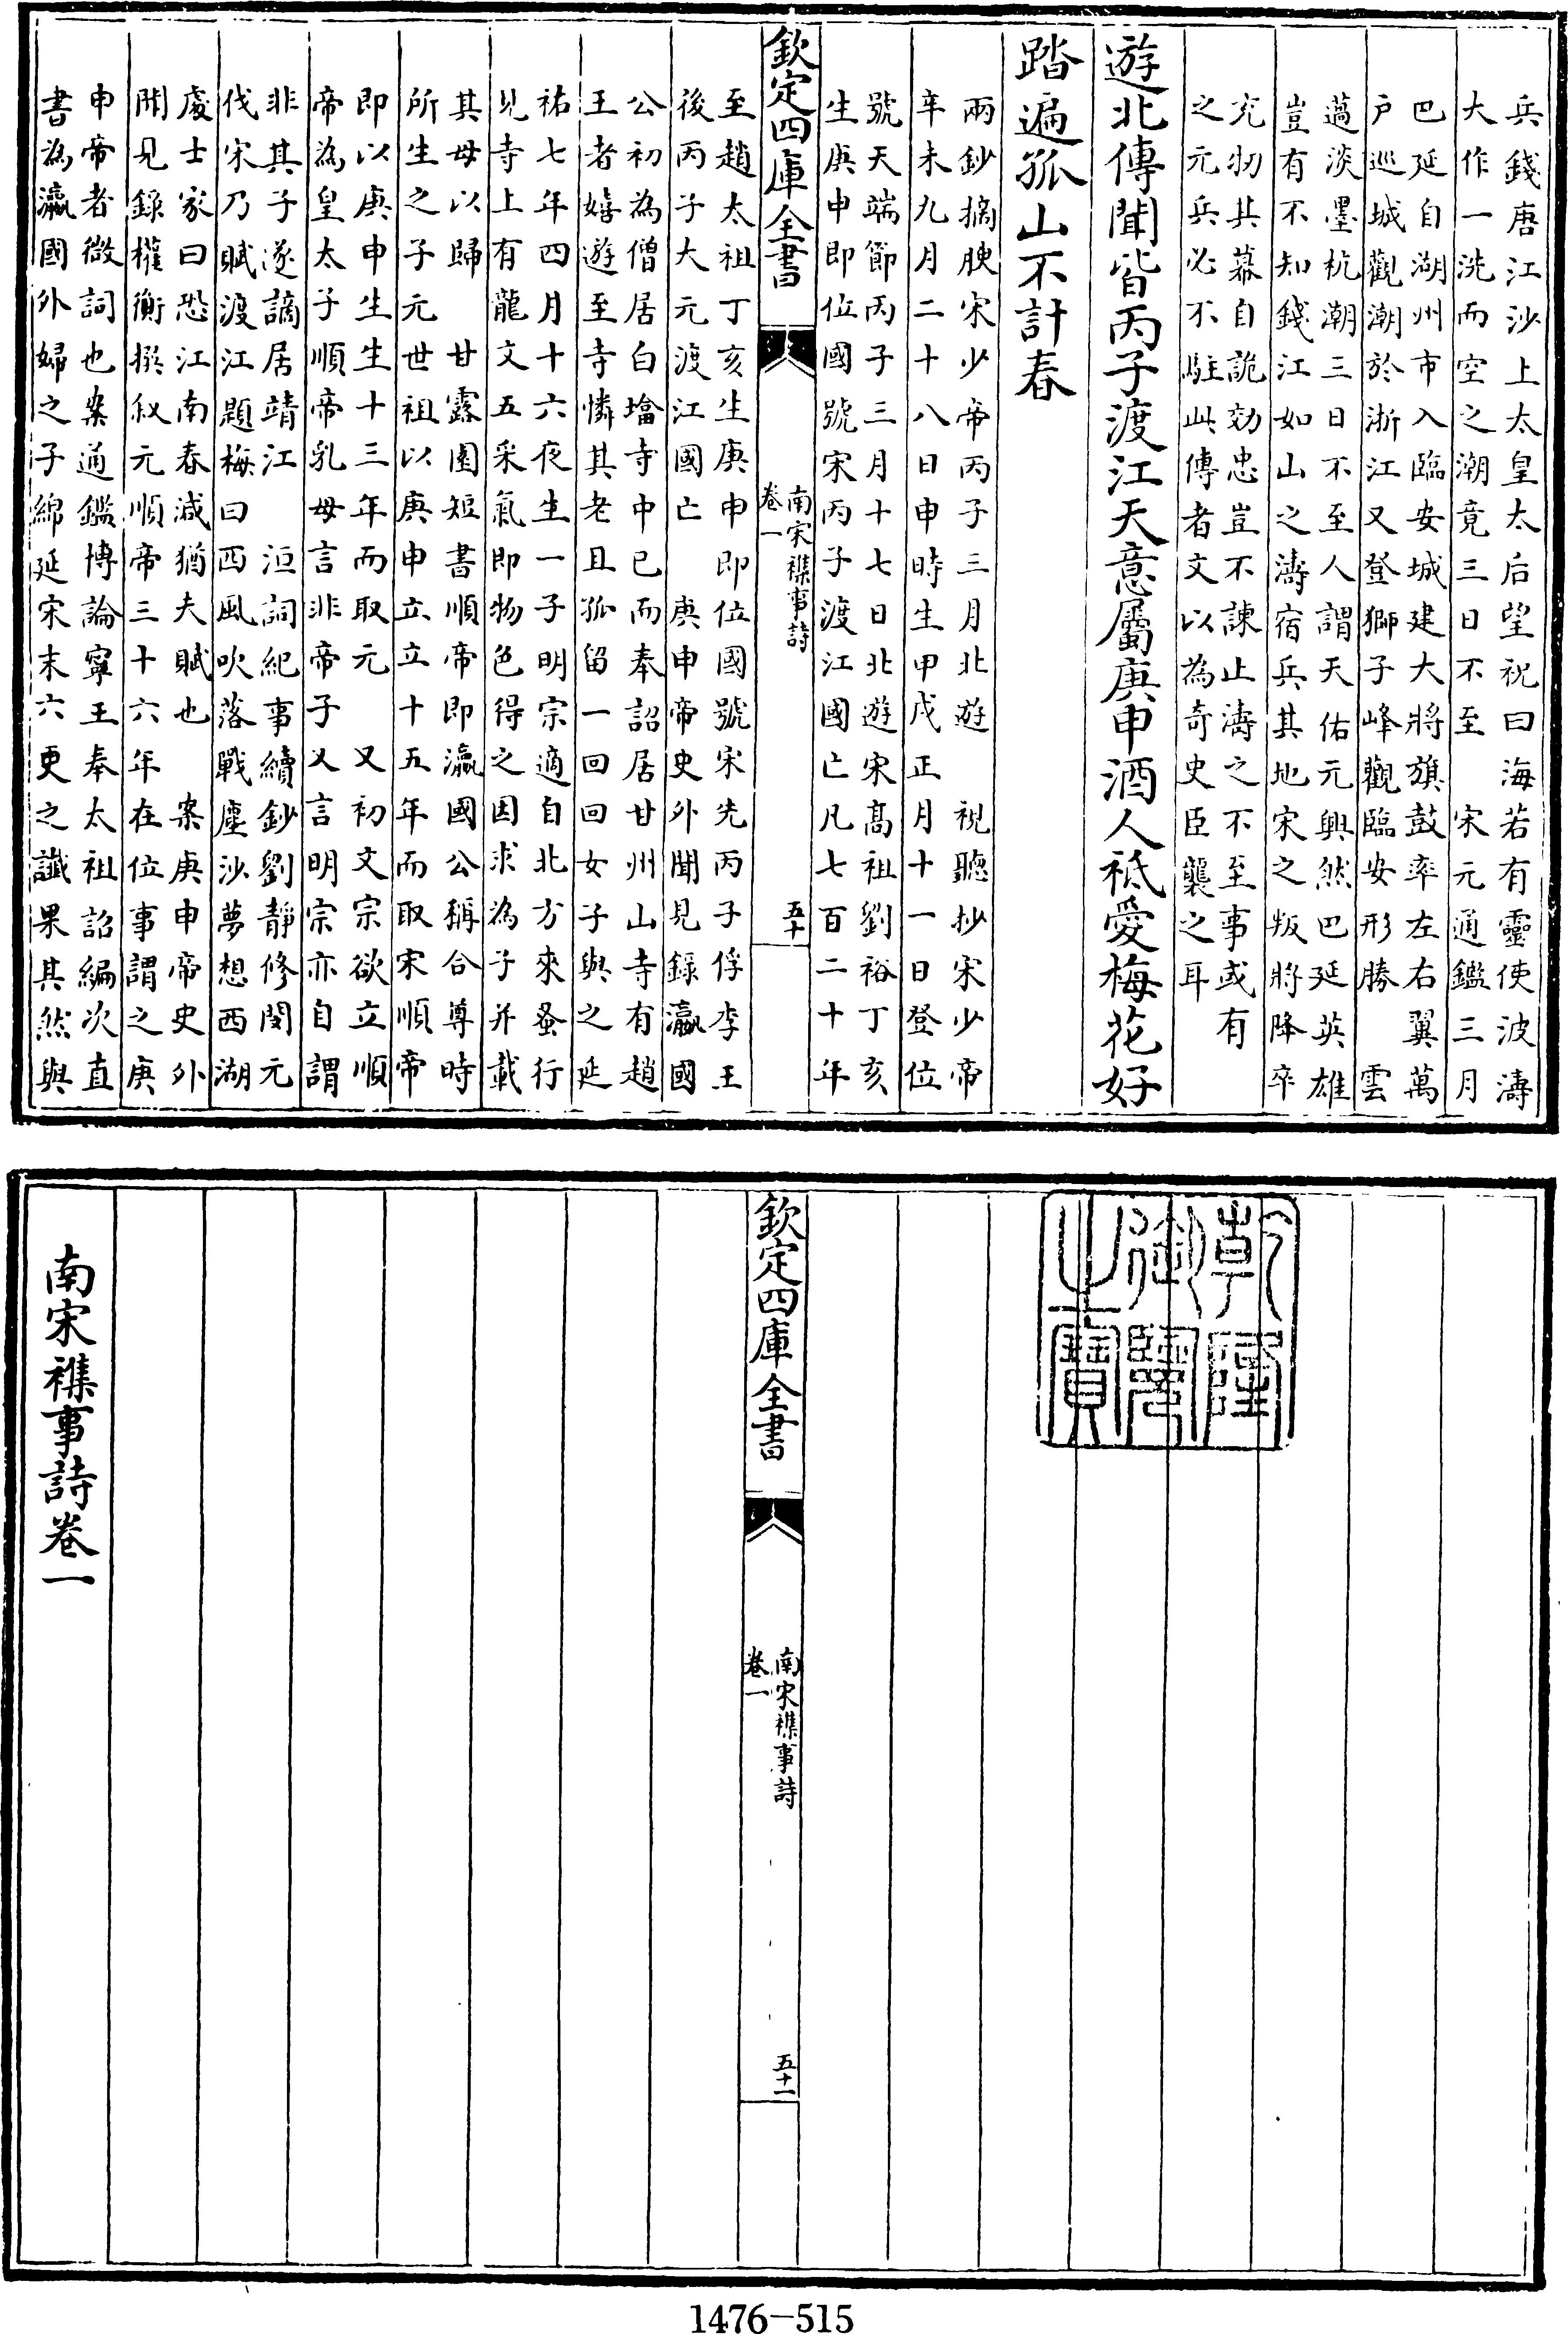 兵錢唐江沙上太皇太后望祝曰海若有靈使波濤
大作一洗而空之潮竟三日不至　宋元通鑑三月
巴延自湖州市入臨安城建大將旗鼓率左右翼萬
戸巡城觀潮於浙江又登獅子峰觀臨安形勝　雲
薖淡墨杭潮三日不至人謂天佑元興然巴延英雄
豈有不知錢江如山之濤宿兵其地宋之叛將降卒
充牣其幕自詭効忠豈不諫止濤之不至事或有
之元兵必不駐此傳者文以為奇史臣襲之耳
遊北傳聞皆丙子渡江天意屬庚申酒人祗愛梅花好
踏遍孤山不計春
兩鈔摘腴宋少帝丙子三月北遊　視聽抄宋少帝
辛未九月二十八日申時生甲戌正月十一日登位
號天端節丙子三月十七日北遊宋高祖劉裕丁亥
生庚申即位國號宋丙子渡江國亡凡七百二十年
欽定四庫全書
南宋襍事詩
卷一
五十
至趙太祖丁亥生庚申即位國號宋先丙子俘李王
後丙子大元渡江國亡　庚申帝史外聞見錄瀛國
公初為僧居白塔寺中已而奉詔居甘州山寺有趙
王者嬉遊至寺憐其老且孤留一回回女子與之延
祐七年四月十六夜生一子明宗適自北方來蚤行
見寺上有龍文五采氣即物色得之因求為子并載
其母以歸　甘露園短書順帝即瀛國公稱合尊時
所生之子元世祖以庚申立立十五年而取宋順帝
即以庚申生生十三年而取元　又初文宗欲立順
帝為皇太子順帝乳母言非帝子又言明宗亦自謂
非其子遂謫居靖江　洹詞紀事續鈔劉靜修閔元
伐宋乃賦渡江題梅曰西風吹落戰塵沙夢想西湖
處士家曰恐江南春減猶夫賦也　案庚申帝史外
聞見錄權衡撰敘元順帝三十六年在位事謂之庚
申帝者微詞也案通鑑博論寧王奉太祖詔編次直
書為瀛國外婦之子綿延宋末六更之讖果其然與
欽定四庫全書
南宋襍事詩
卷一
五十一
南宋襍事詩卷一
乾隆
御覽
之寶
1476-515